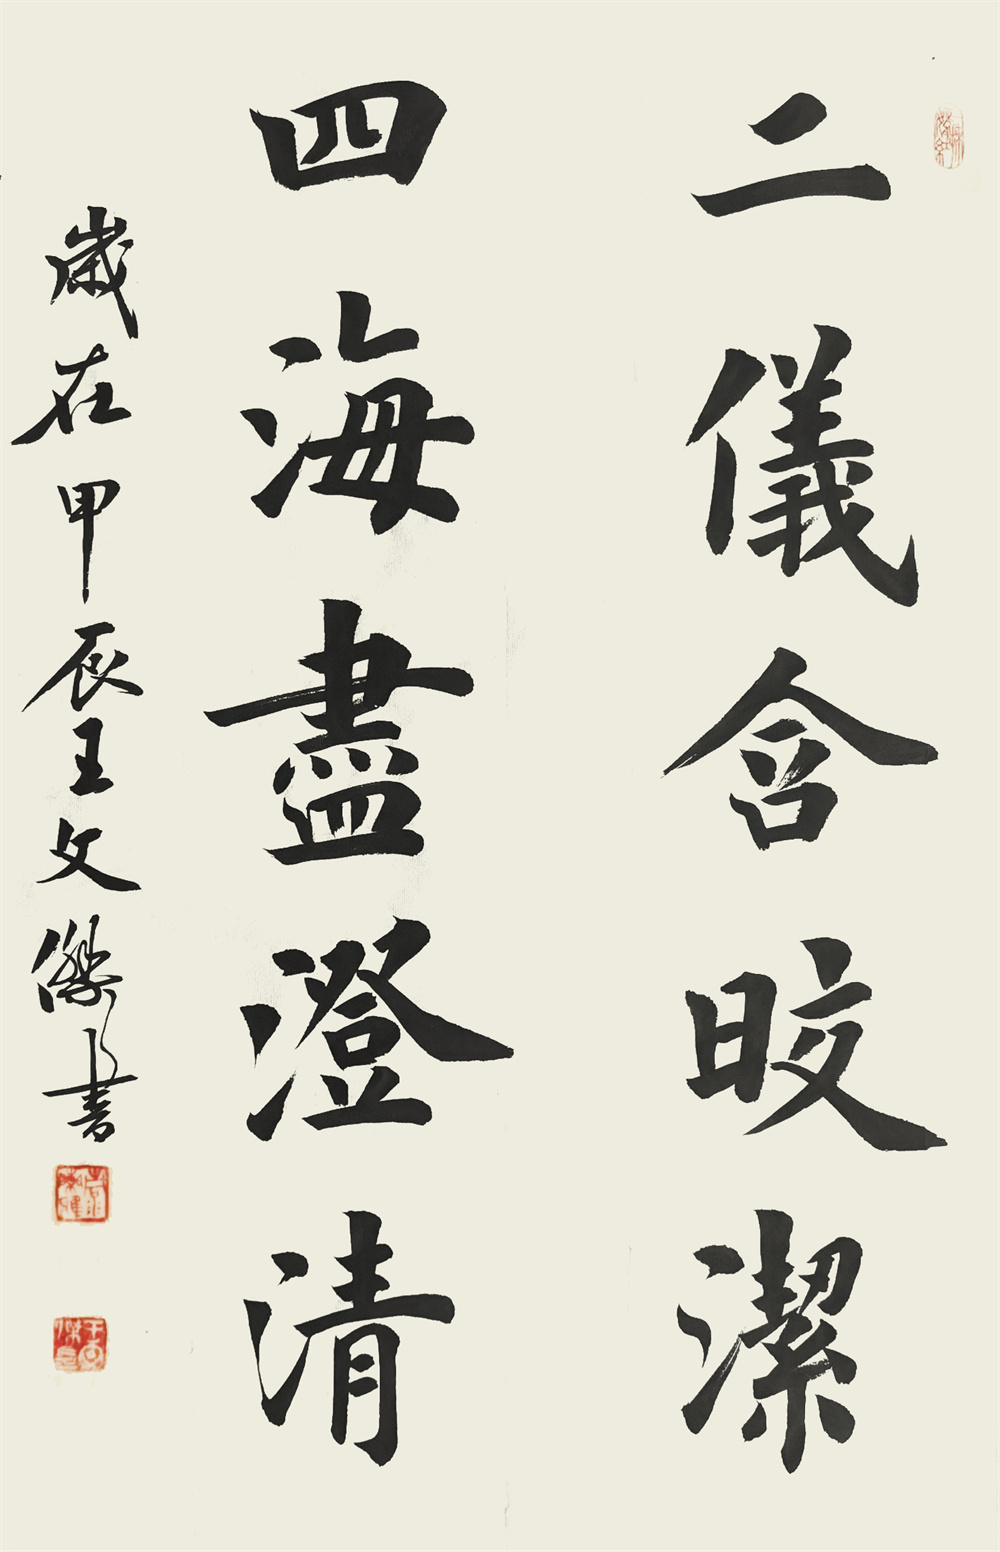 二儀含晈潔
四海盡澄清
歲在甲辰王文傑書